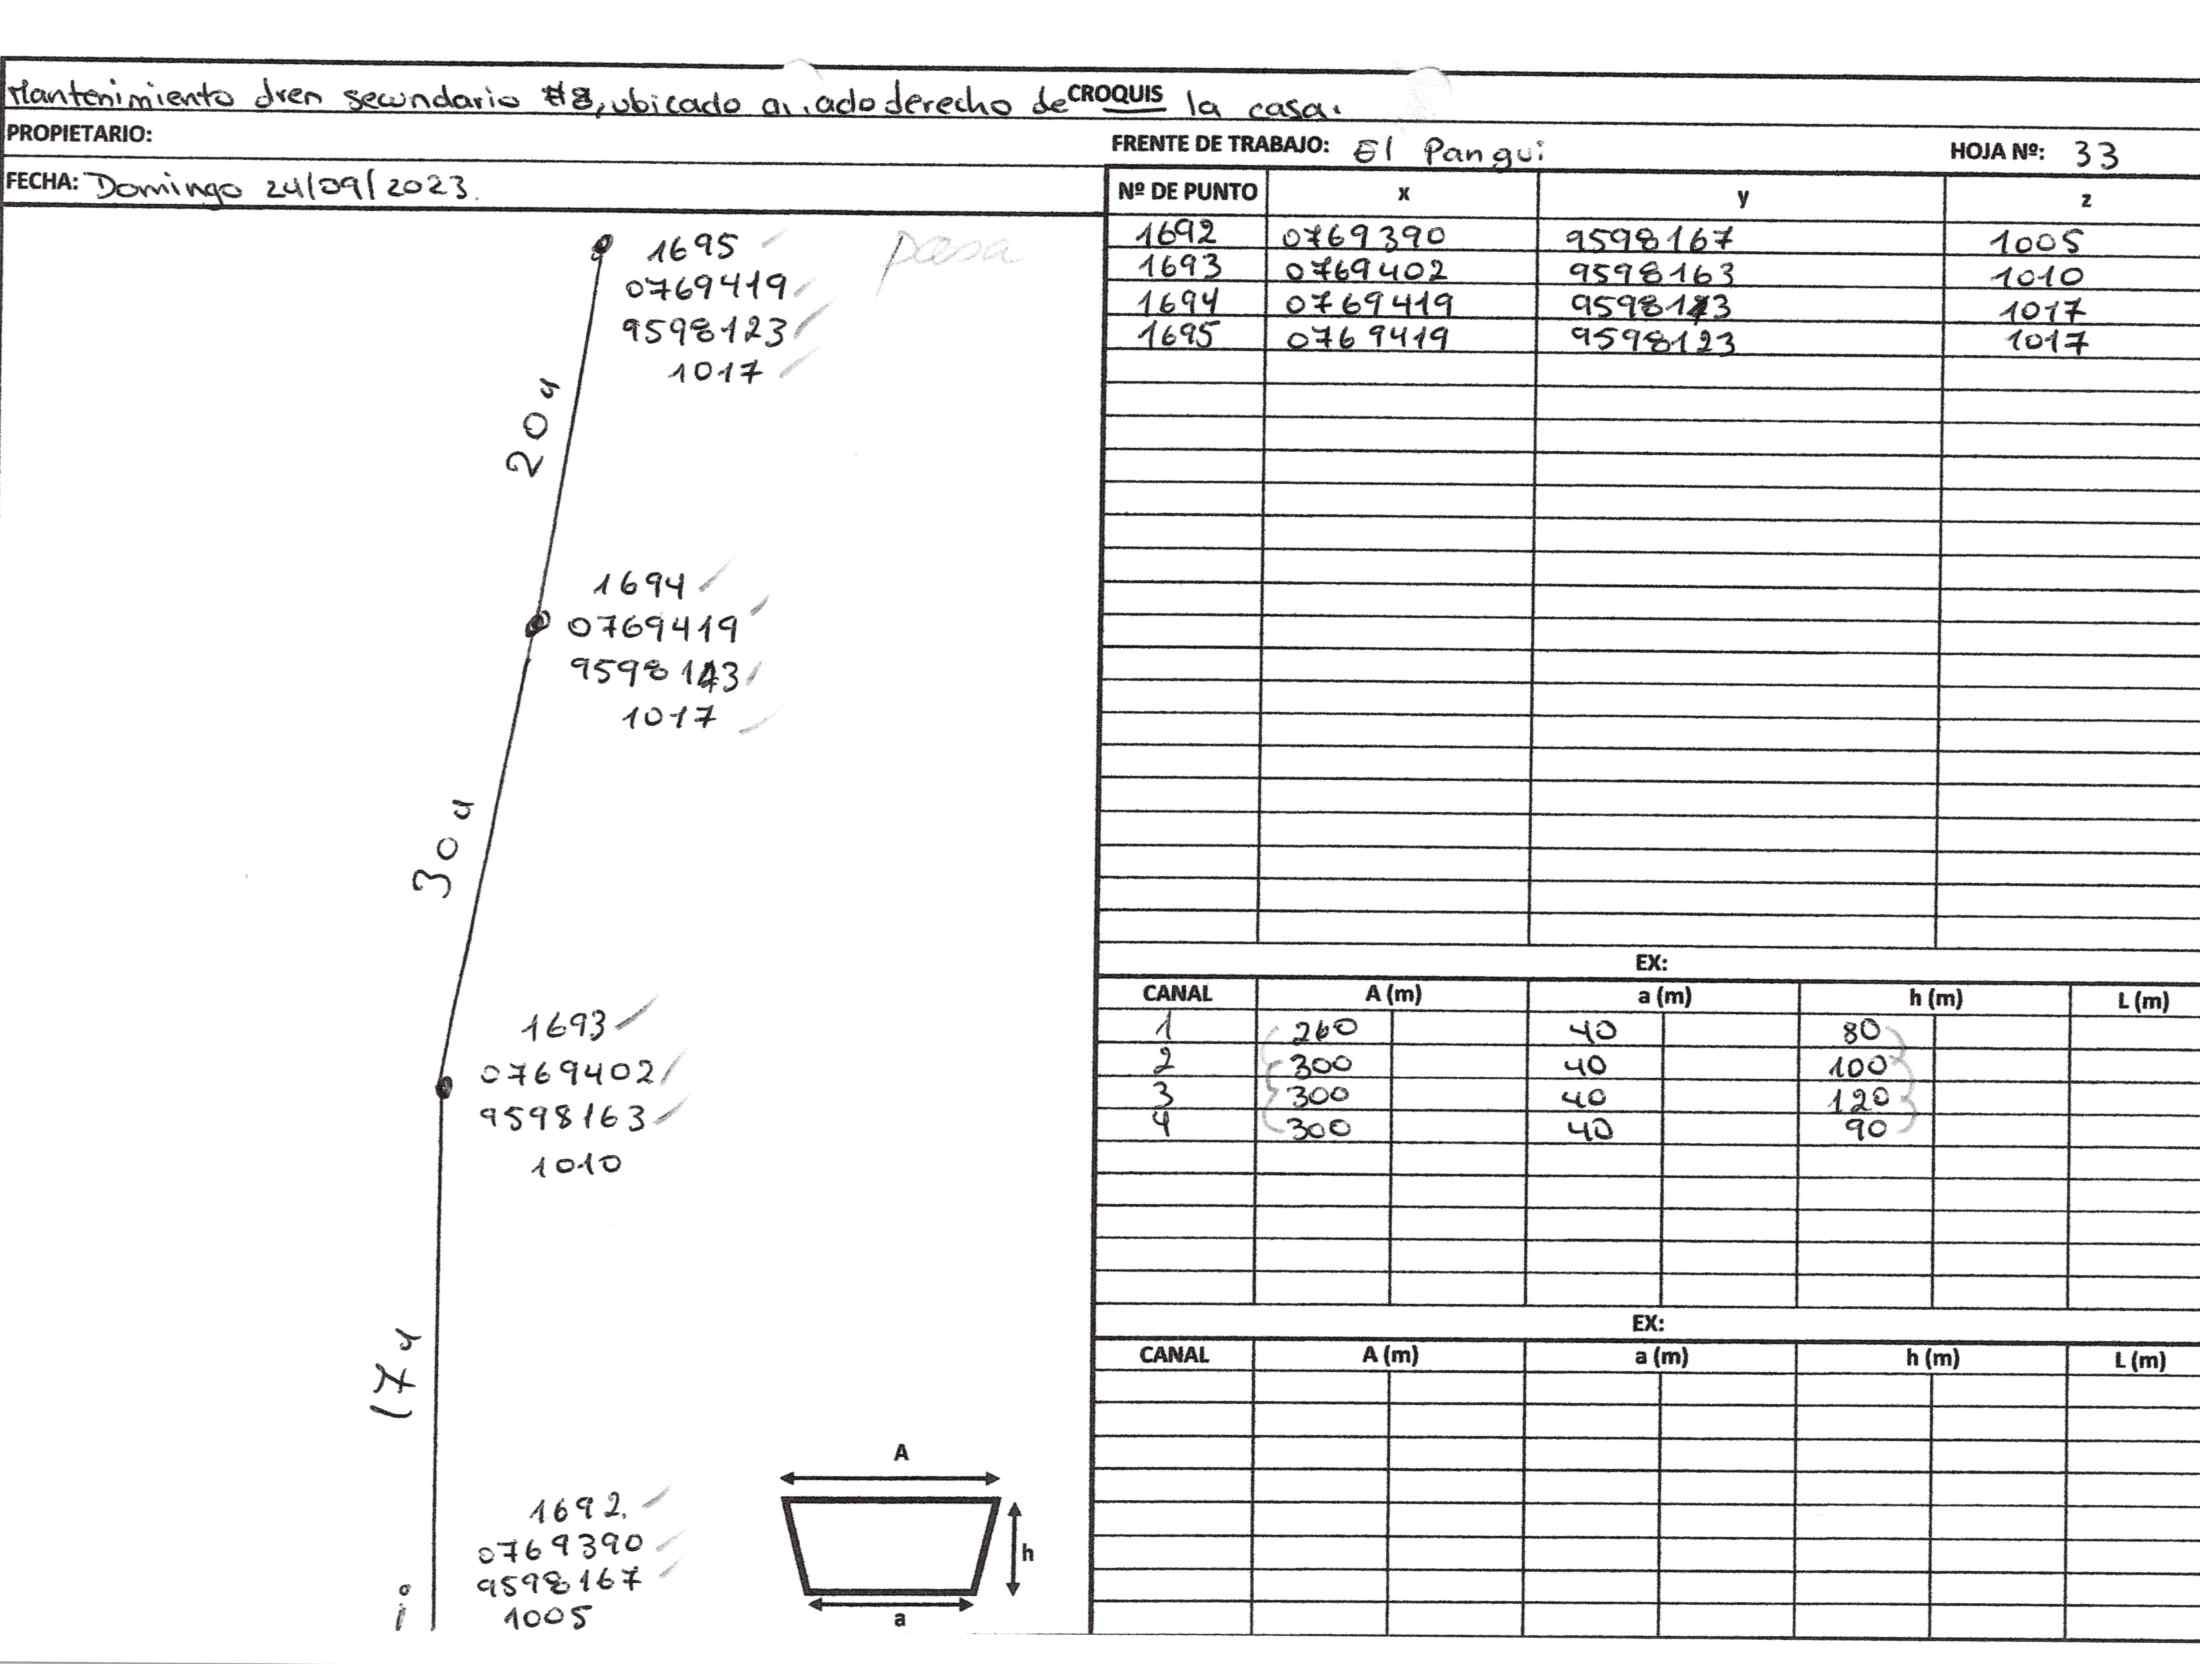 Mantenimiento dren secundario #8, ubicado a ado derecho de CROQUIS la casa.
PROPIETARIO:
FRENTE DE TRABAJO: El Pangui
HOJA Nº: 33
FECHA: Domingo 24/09/2023.
1695
0769419
9598123
1017
pasa
20 u
1694
0769419
9598143
1017
30 u
1693
0769402
9598163
1010
17 u
1692.
0769390
9598167
1005
i
A
h
a
Nº DE PUNTO x y z
1692 0769390 9598167 1005
1693 0769402 9598163 1010
1694 0769419 9598143 1017
1695 0769419 9598123 1017
EX:
CANAL A (m) a (m) h (m) L (m)
1 260 40 80
2 300 40 100
3 300 40 120
4 300 40 90
EX:
CANAL A (m) a (m) h (m) L (m)